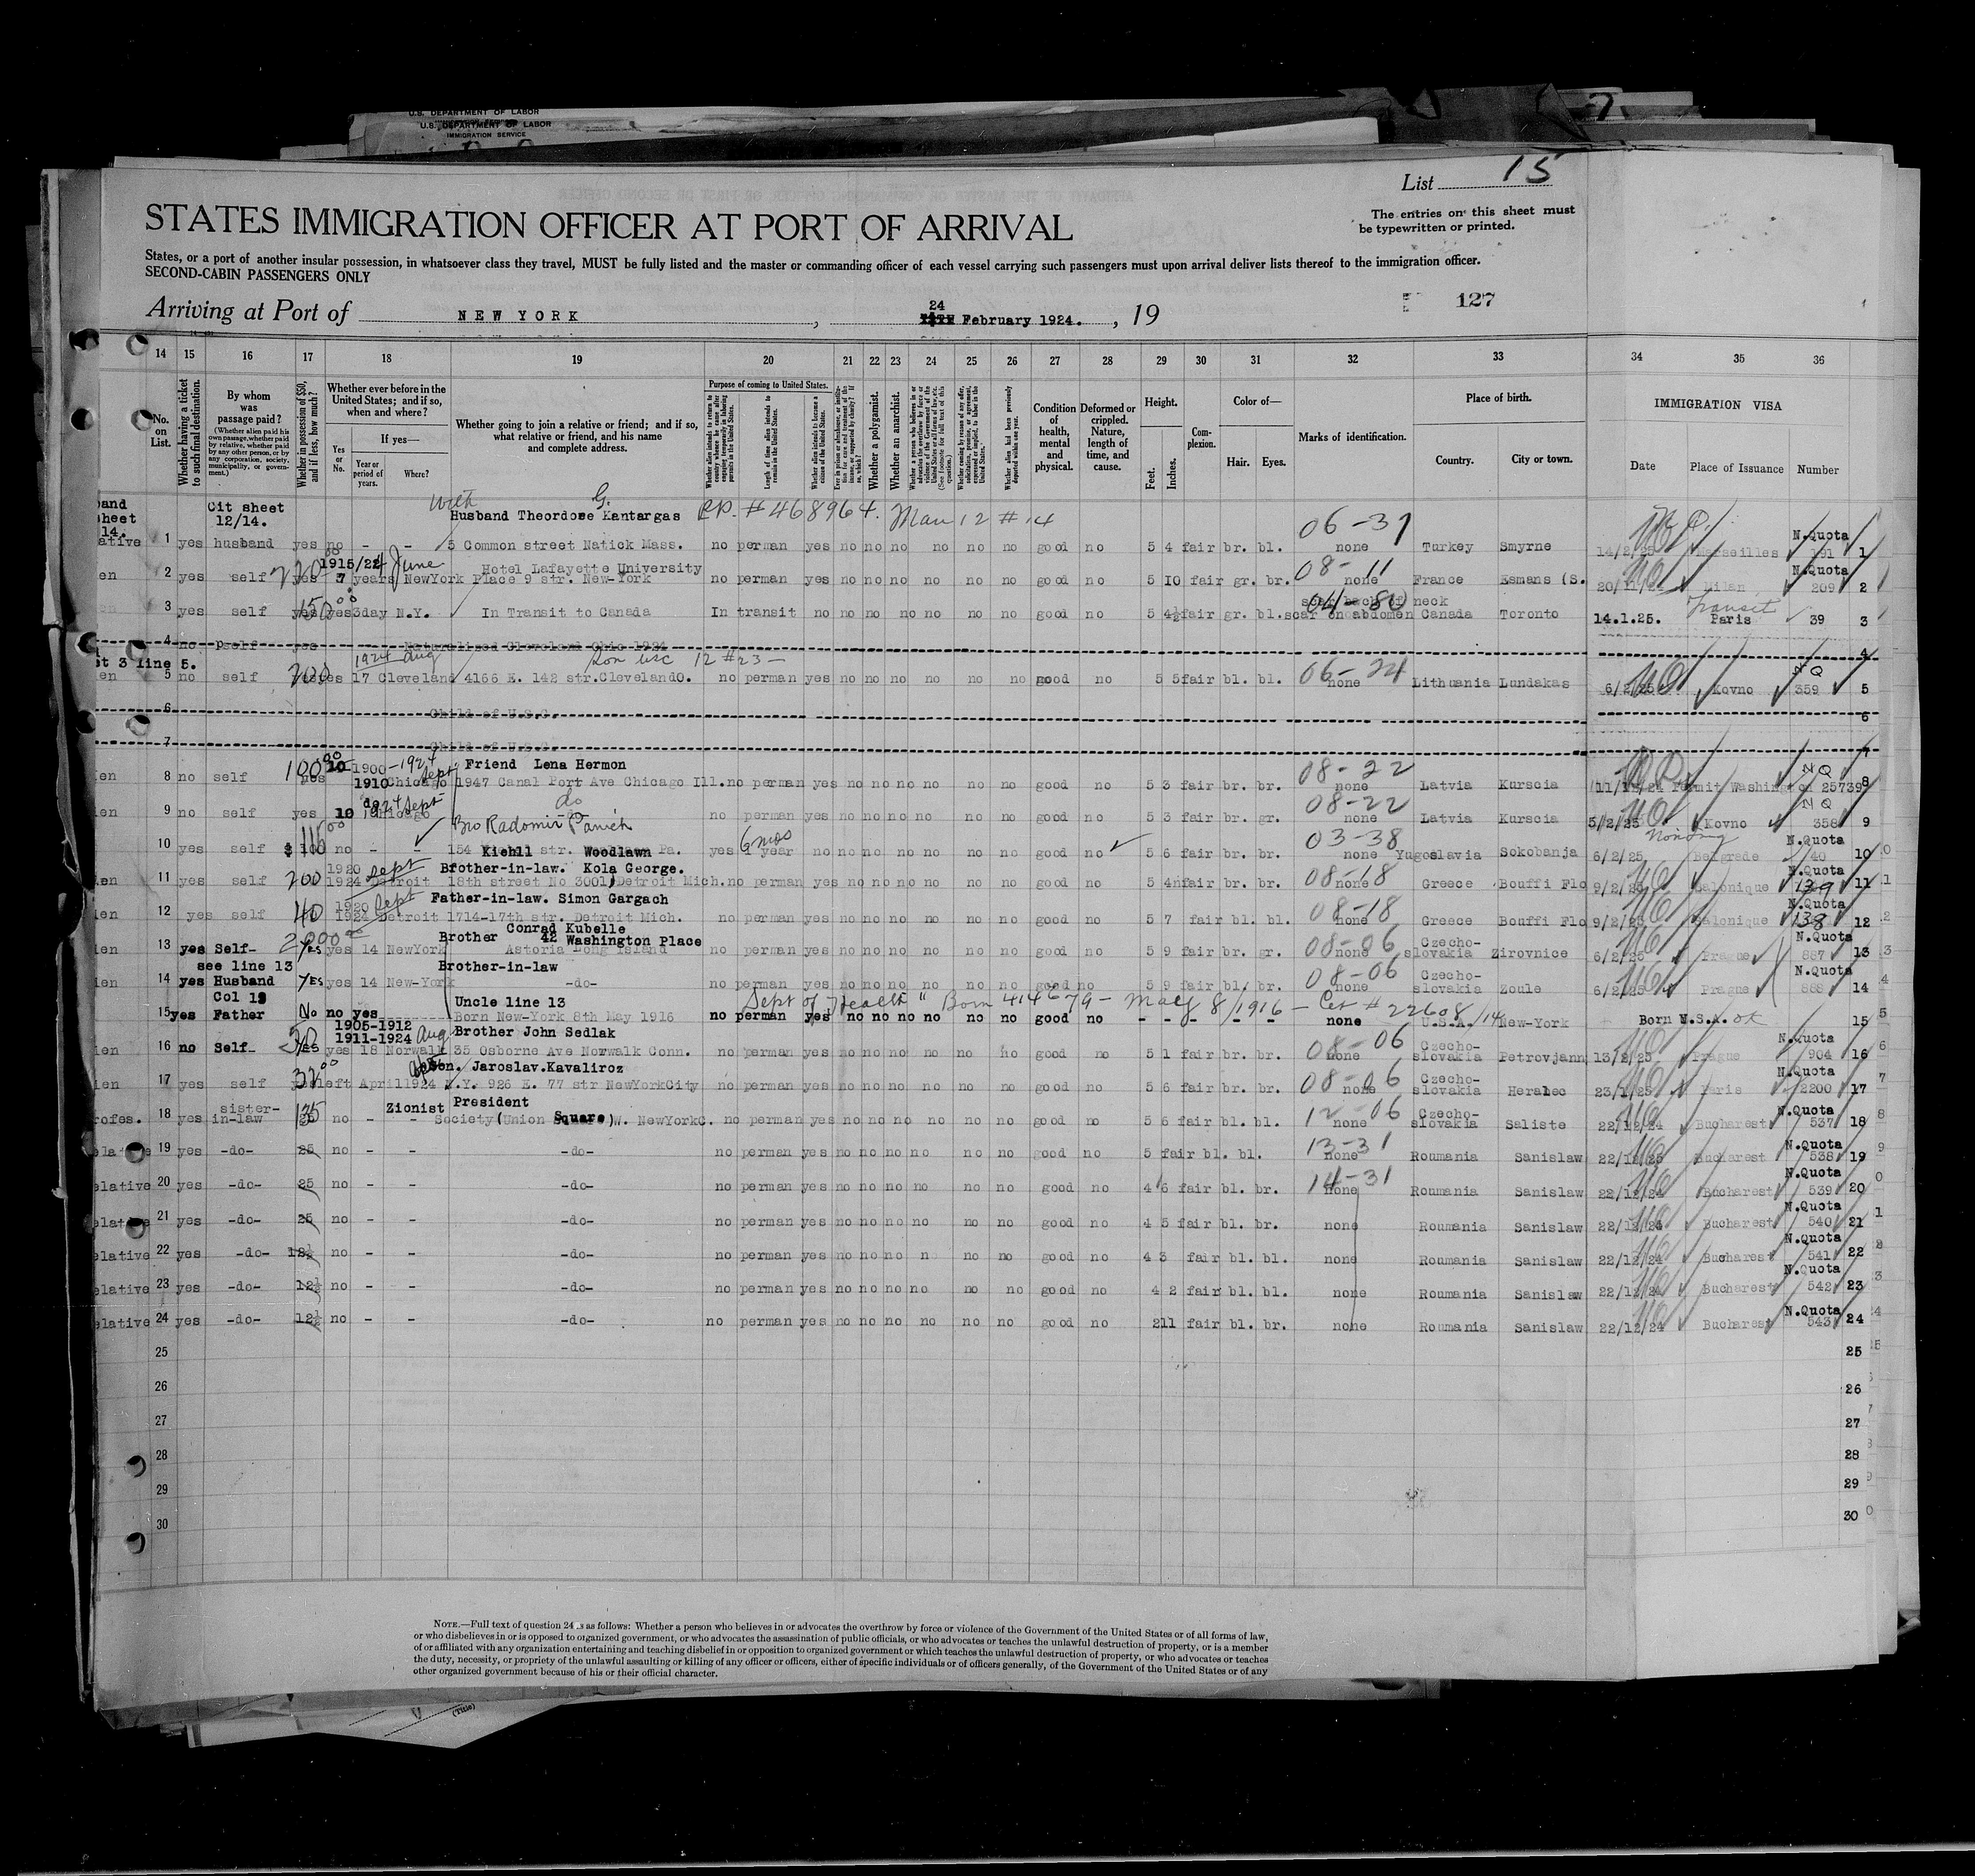 U.S. DEPARTMENT OF LABOR
U.S. DEPARTMENT OF LABOR
IMMIGRATION SERVICE
List 15
STATES IMMIGRATION OFFICER AT PORT OF ARRIVAL
The entries on this sheet must
be typewritten or printed.
States, or a port of another insular possession, in whatsoever class they travel, MUST be fully listed and the master or commanding officer of each vessel carrying such passengers must upon arrival deliver lists thereof to the immigration officer.
SECOND-CABIN PASSENGERS ONLY
Arriving at Port of NEW YORK, 24 February 1924., 19
127
14 15 16 17 18 19 20 21 22 23 24 25 26 27 28 29 30 31 32 33 34 35 36
No. on List.
Whether having a ticket to such final destination.
By whom was passage paid?
(Whether alien paid his own passage, whether paid by any other person, or by any corporation, society, municipality, or government.)
Whether in possession of $50, and if less, how much?
Whether ever before in the United States; and if so, when and where?
Yes or No.
If yes—
Year or period of years.
Where?
Whether going to join a relative or friend; and if so, what relative or friend, and his name and complete address.
Purpose of coming to United States.
Length of time alien intends to remain in the United States.
Whether alien intends to become a citizen of the United States.
Whether a polygamist.
Whether an anarchist.
Condition of health, mental and physical.
Deformed or crippled. Nature, length of time, and cause.
Height.
Feet. Inches.
Complexion.
Color of—
Hair. Eyes.
Marks of identification.
Place of birth.
Country. City or town.
IMMIGRATION VISA
Date Place of Issuance Number
Cit sheet 12/14. with Husband Theordose G. Kantargas PP. # 468964. Man 12 # 14 06-31 N.Quota
1 yes husband yes no - - 5 Common street Natick Mass. no perman yes no no no no no no good no 5 4 fair br. bl. none Turkey Smyrne 14/2/25 Marseilles 191 1
1915/24 June Hotel Lafayette University 08-11 N.Quota
2 yes self yes 7 years NewYork Place 9 str. New-York no perman yes no no no no no no good no 5 10 fair gr. br. none France Esmans (S. Milan 209 2
neck Transit
3 yes self 150 yes 3day N.Y. In Transit to Canada In transit no no no no no no no good no 5 4½ fair gr. bl. scar on abdomen Canada Toronto 14.1.25. Paris 39 3
4 no self yes Naturalized Cleveland Ohio 1921 4
st 3 line 5. 1924 Aug Son usc 12 #23 06-24 N Q
5 no self 200 yes 17 Cleveland 4166 E. 142 str. ClevelandO. no perman yes no no no no no no good no 5 5 fair bl. bl. none Lithuania Lundakas 6/2/25 Kovno 359 5
6 Child of U.S.C. 6
7 Child of U.S.C. 7
100 10 1900-1924 Sept Friend Lena Hermon 08-22 N Q
8 no self yes 1910 Chicago 1947 Canal Port Ave Chicago Ill. no perman yes no no no no no no good no 5 3 fair br. br. none Latvia Kurscia Permit Washington 25739 8
1924 Sept do 08-22 N Q
9 no self yes 10 Chicago -do- no perman yes no no no no no no good no 5 3 fair br. gr. none Latvia Kurscia 5/2/25 Kovno 358 9
Bro Radomir Panich 6 mos 03-38 N.Quota
10 yes self $ 110 no - - 154 Kiehll str. Woodlawn Pa. yes year no no no no no no no good no 5 6 fair br. br. none Yugoslavia Sokobanja 6/2/25 Belgrade 40 10
1920 Sept Brother-in-law. Kola George. 08-18 N.Quota
11 yes self 200 1924 Detroit 18th street No 3001, Detroit Mich. no perman yes no no no no no no good no 5 4 fair br. br. none Greece Bouffi Flo 9/2/25 Salonique 139 11
1920 Sept Father-in-law. Simon Gargach 08-18 N.Quota
12 yes self 40 1924 Detroit 1714-17th str. Detroit Mich. no perman yes no no no no no no good no 5 7 fair bl. bl. none Greece Bouffi Flo 9/2/25 Salonique 138 12
Brother Conrad Kubelle 42 Washington Place N.Quota
13 yes Self- Yes yes 14 NewYork Astoria Long Island no perman yes no no no no no no good no 5 9 fair br. gr. 08-06 none Czecho-slovakia Zirovnice 6/2/25 Prague 887 13
see line 13 Brother-in-law 08-06 N.Quota
14 yes Husband Yes yes 14 New-York -do- no perman yes no no no no no no good no 5 9 fair bl. br. none Czecho-slovakia Zoule 6/2/25 Prague 888 14
Col 19 Uncle line 13 Sept of Health Born May 8/1916 - Cer # 22608/14
15 yes Father No no yes Born New-York 8th May 1916 no perman yes no no no no no no good no - - - - - none U.S.A. New-York Born U.S.A. ok 15
1905-1912 1911-1924 Aug Brother John Sedlak 08-06 N.Quota
16 no Self- yes yes 18 Norwalk 35 Osborne Ave Norwalk Conn. no perman yes no no no no no no good no 5 1 fair br. br. none Czecho-slovakia Petrovjann 13/2/25 Prague 904 16
32 Son. Jaroslav.Kavaliroz 08-06 N.Quota
17 yes self yes left April 1924 N.Y. 926 E. 77 str NewYorkCity no perman yes no no no no no no good no 5 6 fair br. br. none Czecho-slovakia Heralec 23/1/25 Paris 2200 17
Zionist President 12-06 N.Quota
18 yes sister-in-law 135 no - - Society (Union Square) W. NewYorkC. no perman yes no no no no no no good no 5 6 fair bl. bl. none Czecho-slovakia Saliste 22/12/24 Bucharest 537 18
13-31 N.Quota
19 yes -do- 25 no - - -do- no perman yes no no no no no no good no 5 fair bl. bl. none Roumania Sanislaw Bucharest 538 19
14-31 N.Quota
20 yes -do- 25 no - - -do- no perman yes no no no no no no good no 4 6 fair bl. br. none Roumania Sanislaw 22/12/24 Bucharest 539 20
N.Quota
21 yes -do- 25 no - - -do- no perman yes no no no no no no good no 4 5 fair bl. br. none Roumania Sanislaw 22/12/24 Bucharest 540 21
N.Quota
22 yes -do- 12½ no - - -do- no perman yes no no no n no no good no 4 3 fair bl. bl. none Roumania Sanislaw 22/12/24 Bucharest 541 22
N.Quota
23 yes -do- 12½ no - - -do- no perman yes no no no no no no good no 4 2 fair bl. bl. none Roumania Sanislaw 22/12/24 Bucharest 542 23
N.Quota
24 yes -do- 12½ no - - -do- no perman yes no no no no no no good no 2 11 fair bl. br. none Roumania Sanislaw 22/12/24 Bucharest 543 24
25 25
26 26
27 27
28 28
29 29
30 30
NOTE.—Full text of question 24 is as follows: Whether a person who believes in or advocates the overthrow by force or violence of the Government of the United States or of all forms of law,
or who disbelieves in or is opposed to organized government, or who advocates the assassination of public officials, or who advocates or teaches the unlawful destruction of property, or is a member
of or affiliated with any organization entertaining and teaching disbelief in or opposition to organized government or which teaches the unlawful destruction of property, or who advocates or teaches
the duty, necessity, or propriety of the unlawful assaulting or killing of any officer or officers, either of specific individuals or of officers generally, of the Government of the United States or of any
other organized government because of his or their official character.
(Title)